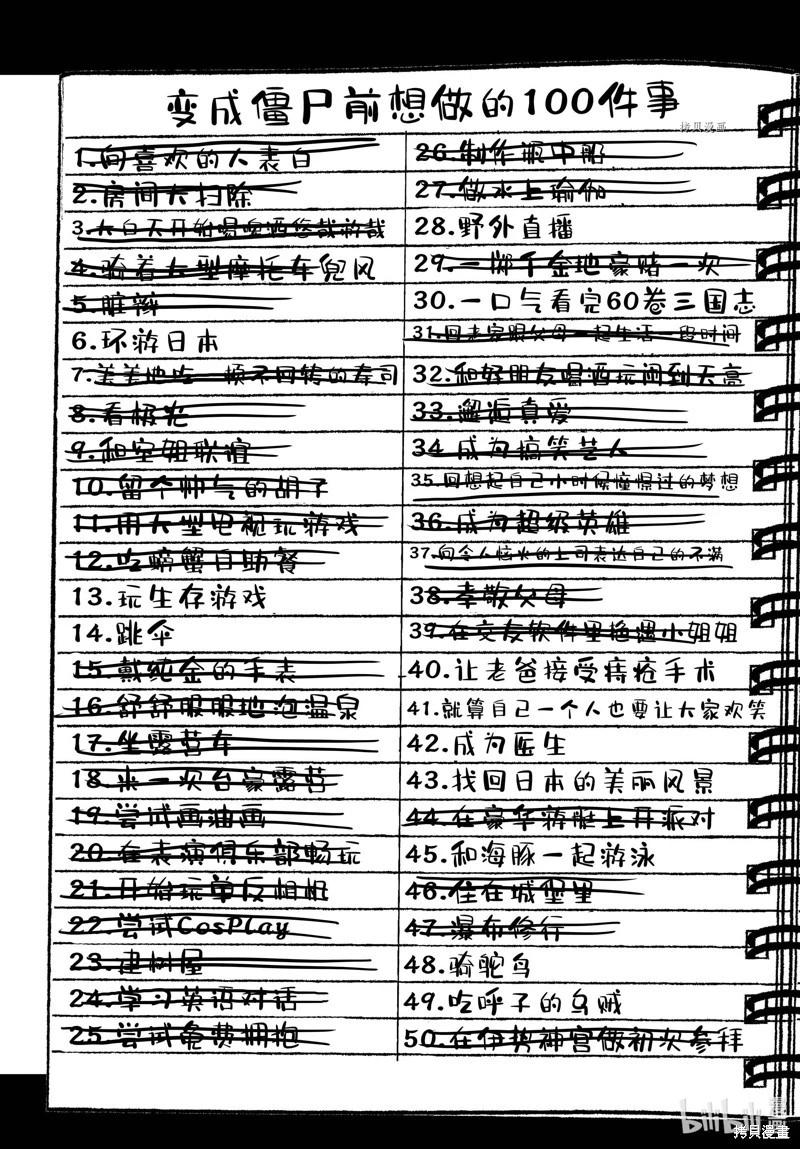 变成僵尸前想做的100件事
拷贝漫画
1.向喜欢的人表白
2.房间大扫除
3.大白天开始喝啤酒悠哉游哉
4.骑着大型摩托车兜风
5.脏辫
6.环游日本
7.美美地吃一顿不回转的寿司
8.看极光
9.和空姐联谊
10.留个帅气的胡子
11.用大型电视玩游戏
12.吃螃蟹自助餐
13.玩生存游戏
14.跳伞
15.戴纯金的手表
16.舒舒服服地泡温泉
17.坐露营车
18.来一次台豪露营
19.尝试画油画
20.在表演俱乐部畅玩
21.开始玩单反相机
22.尝试CosPlay
23.建树屋
24.学习英语对话
25.尝试免费拥抱
26.制作瓶中船
27.做水上瑜伽
28.野外直播
29.一掷千金地豪赌一次
30.一口气看完60卷三国志
31.回老家跟父母一起生活一段时间
32.和好朋友喝酒玩闹到天亮
33.邂逅真爱
34.成为搞笑艺人
35.回想起自己小时候憧憬过的梦想
36.成为超级英雄
37.向令人恼火的上司表达自己的不满
38.孝敬父母
39.在交友软件里艳遇小姐姐
40.让老爸接受痔疮手术
41.就算自己一个人也要让大家欢笑
42.成为医生
43.找回日本的美丽风景
44.在豪华游艇上开派对
45.和海豚一起游泳
46.住在城堡里
47.瀑布修行
48.骑鸵鸟
49.吃呼子的乌贼
50.在伊势神宫做初次参拜
bilibili
拷贝漫画